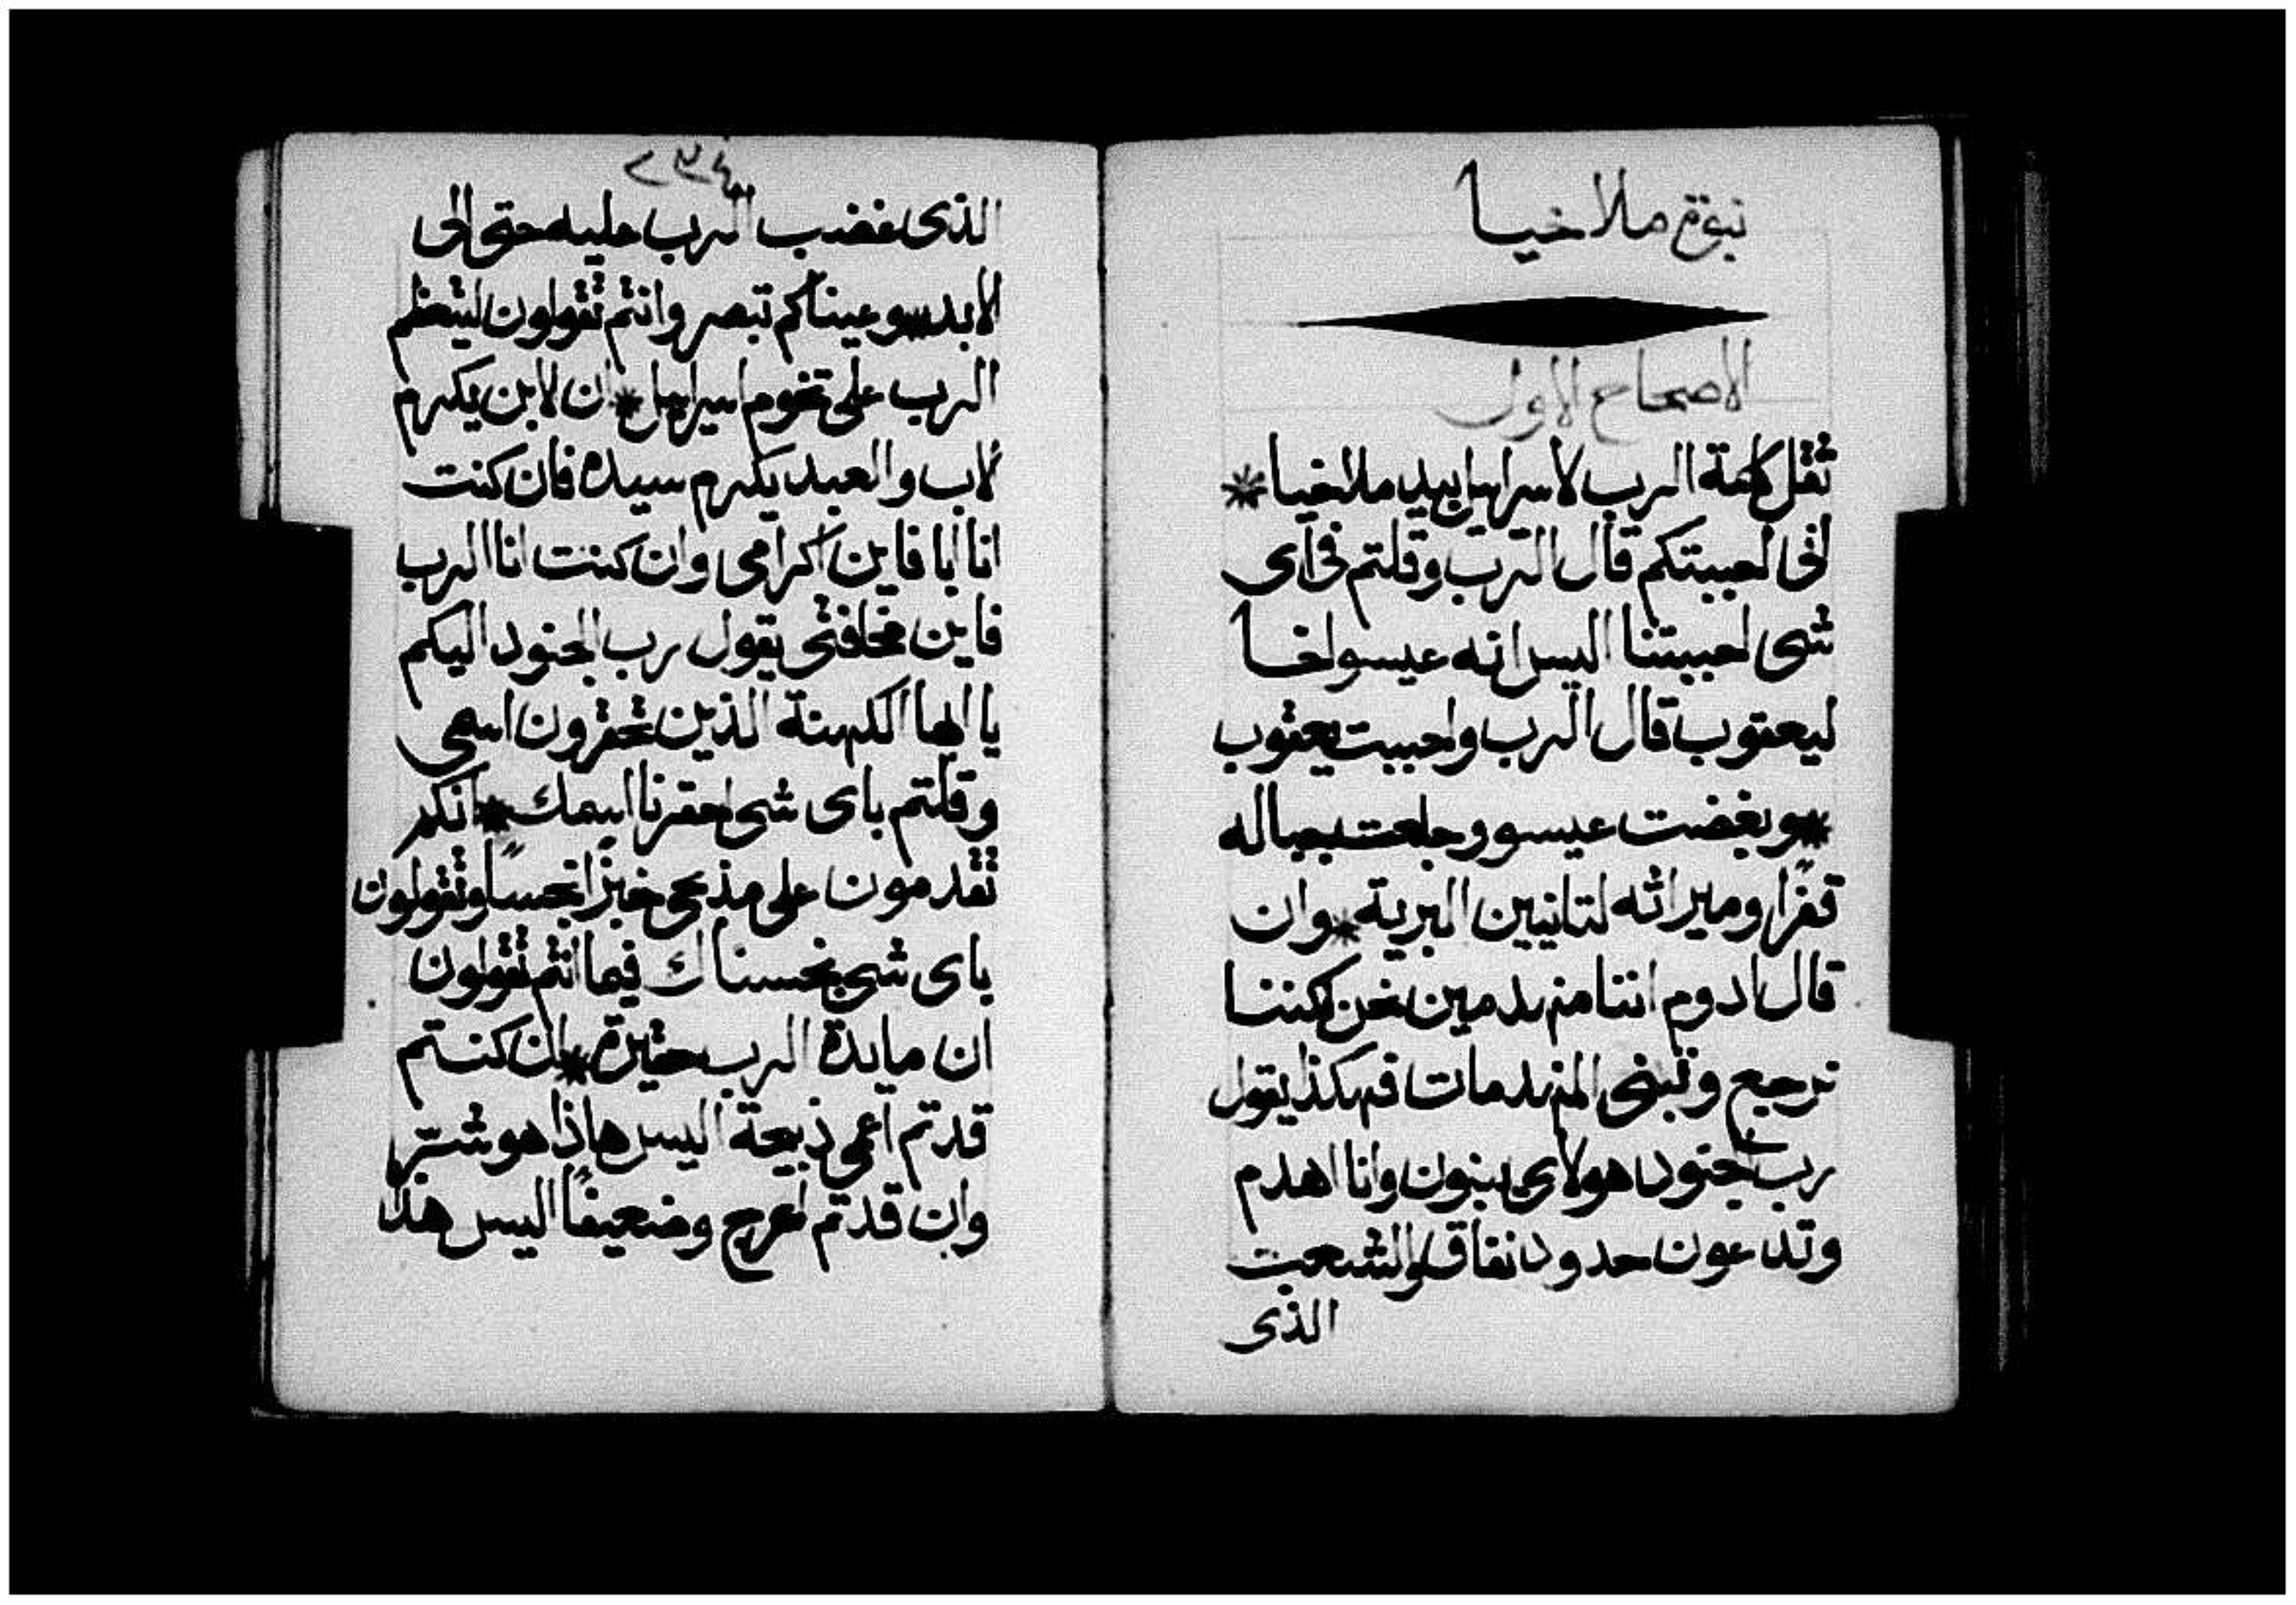 نبوة ملاخيا
الاصحاح الاول
ثقل كلمة الرب لاسراييل بيد ملاخيا *
اني احببتكم قال الرب وقلتم في اى
شى احببتنا اليس انه عيسو اخا
ليعقوب قال الرب واحببت يعقوب
* وبغضت عيسو وجلعت جباله
قفرًا وميراثه لتانيين البرية * وان
قال ادوم اننا منهدمين نحن لكننا
نرجع وتبنى المنهدمات فهكذا يقول
رب الجنود هولاى يبنون وانا اهدم
وتدعون حدود نفاق والشعب
الذى
٢٣٤
الذى غضب الرب عليه حتى الى
الابد * وعيناكم تبصر وانتم تقولون ليتعظم
الرب على تخوم اسراييل * ان الابن يكرم
الاب والعبد يكرم سيده فان كنت
انا ابا فاين اكرامى وان كنت انا الرب
فاين مخافتى يقول رب الجنود اليكم
يا ايها الكهنة الذين تحقرون اسمى
وقلتم باى شى احقرنا اسمك * انكم
تقدمون على مذبحى خبزًا نجسًا وتقولون
باى شى نجسناك فيما انتم تقولون
ان مايدة الرب حقيرة * ان كنتم
قدتم اعمى ذبيحة اليس هاذا هو شر
وان قدتم اعرج وضعيفًا اليس هذا